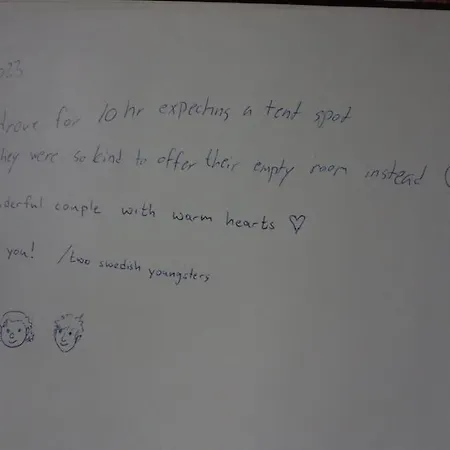 drove for 10hr expecting a tent spot
they were so kind to offer their empty room instead
couple with warm hearts ♡
you! /two swedish youngsters